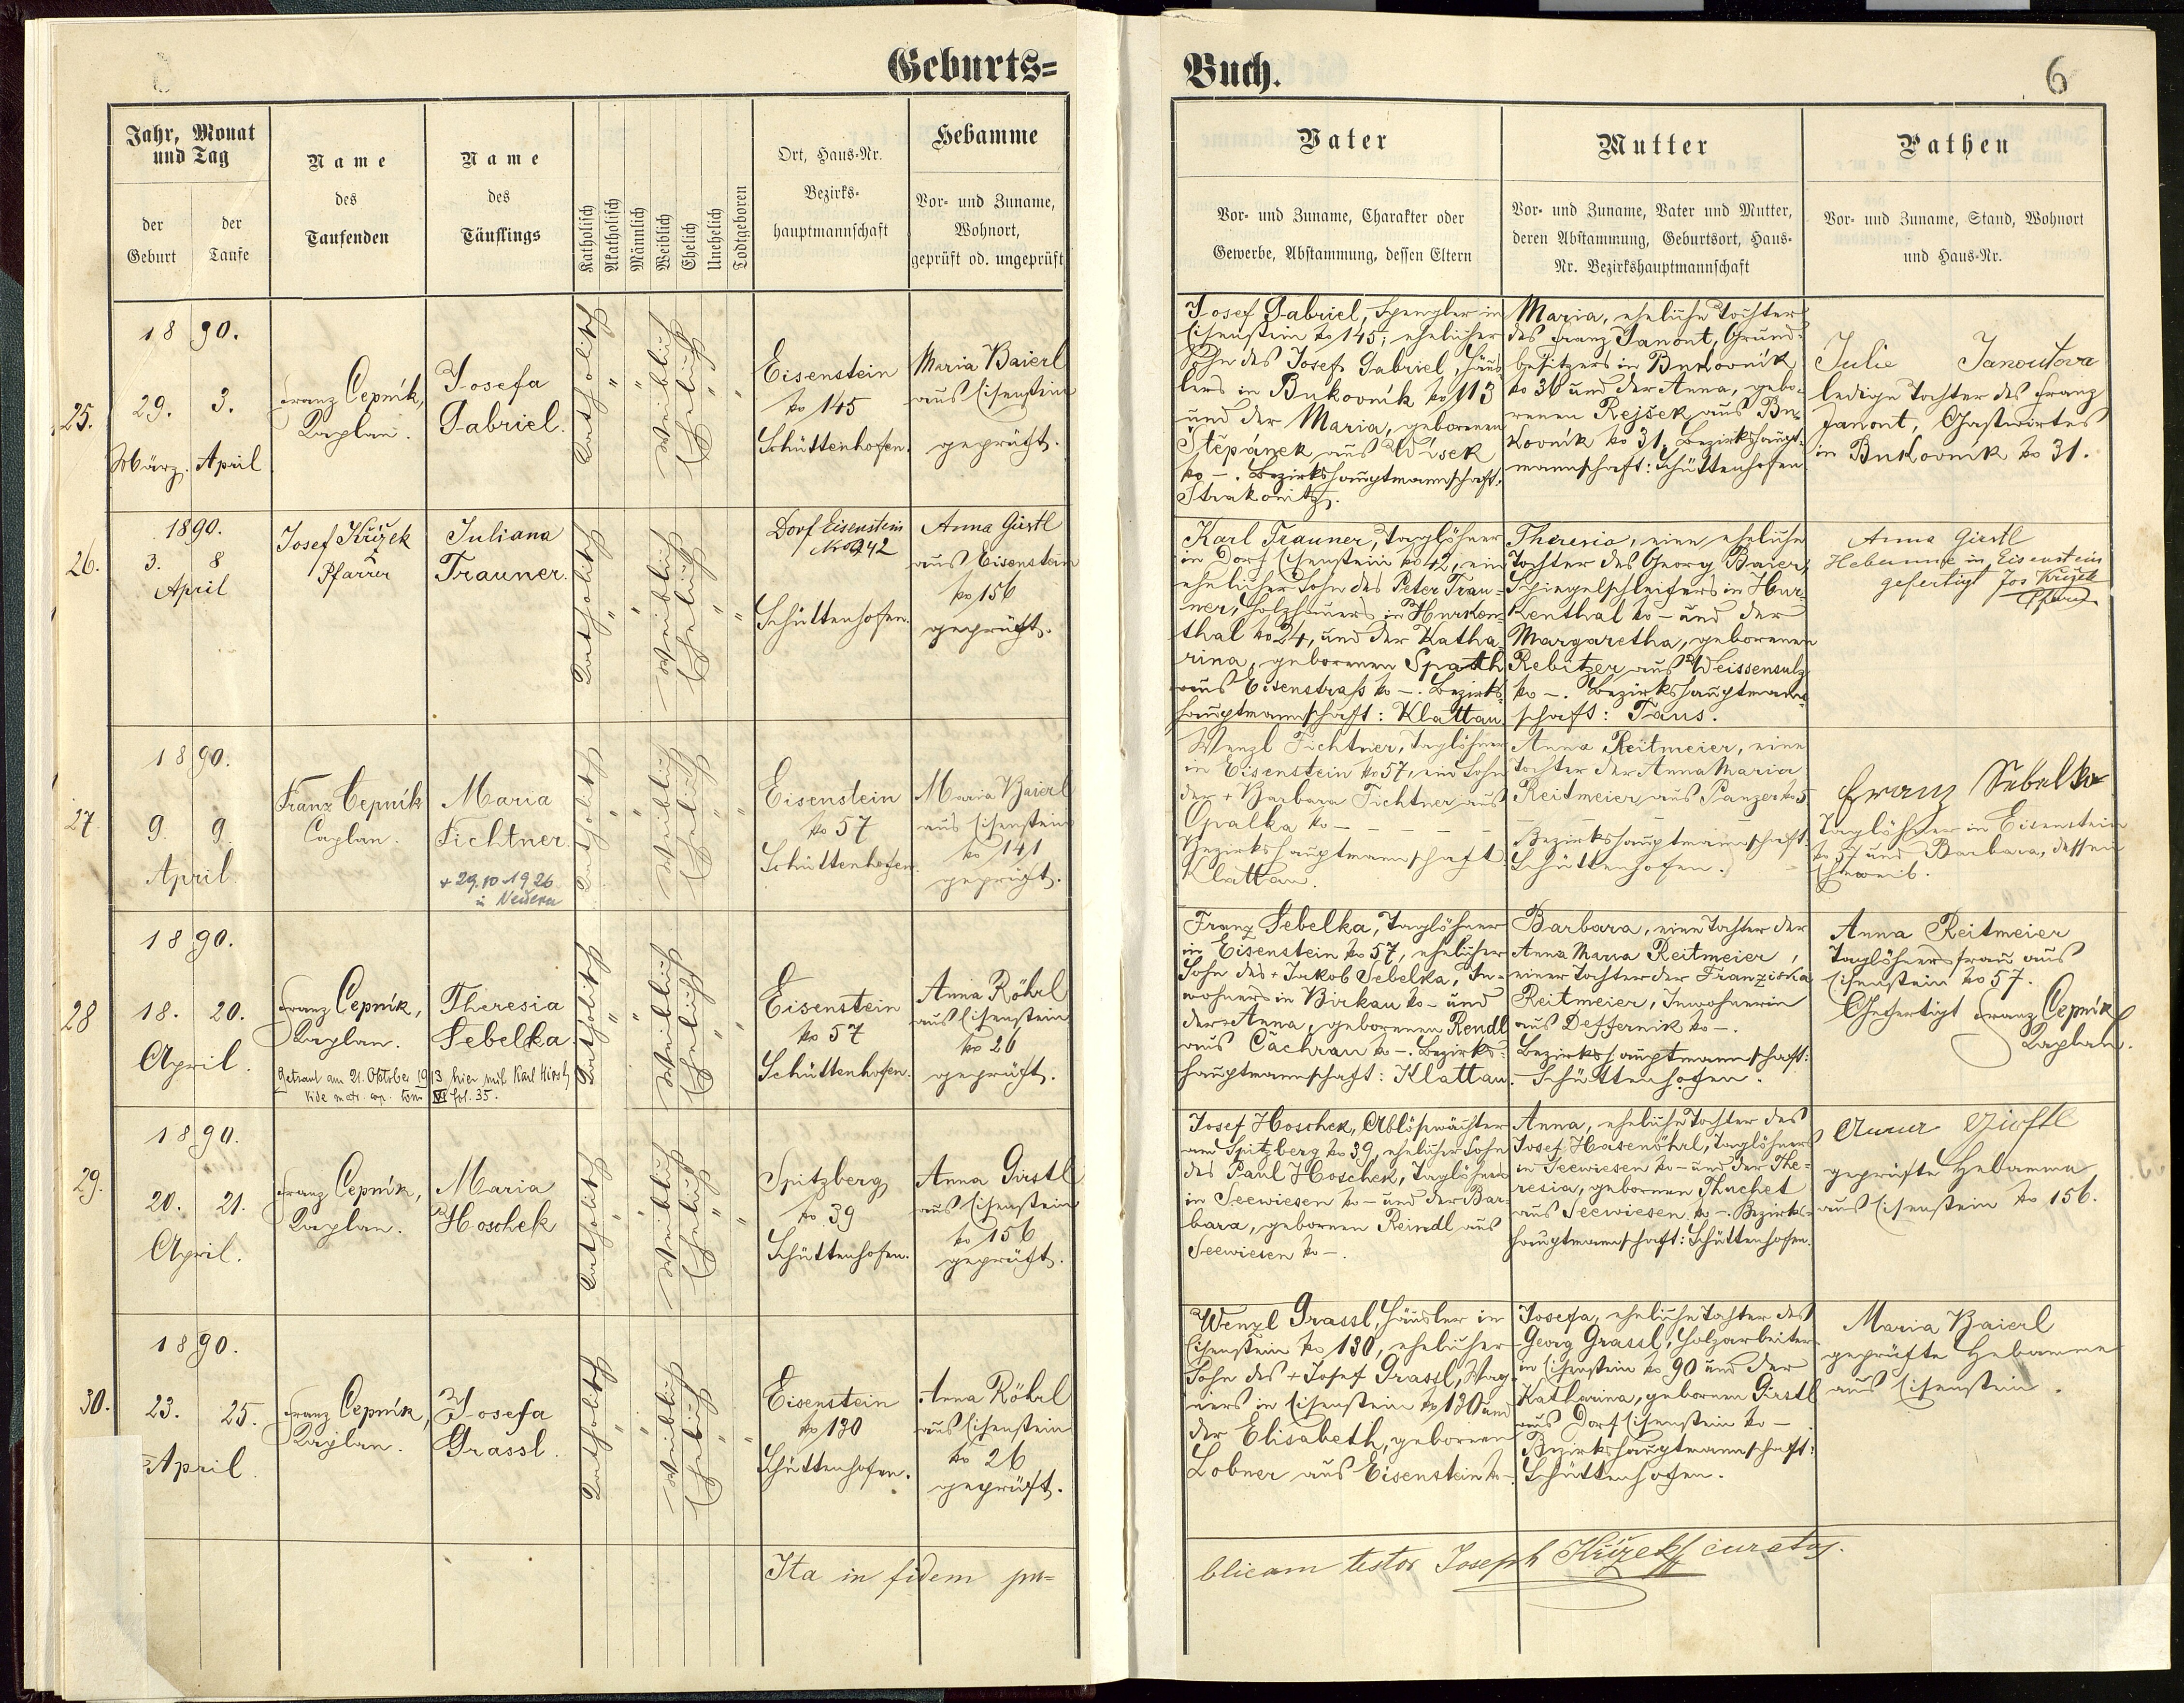 Geburts=
Jahr, Monat
und Tag
der
Geburt
der
Taufe
Name
des
Taufenden
Name
des
Täuflings
Katholisch
Akatholisch
Männlich
Weiblich
Ehelich
Unehelich
Todtgeboren
Ort, Haus-Nr.
Bezirks-
hauptmannschaft
Hebamme
Vor- und Zuname,
Wohnort,
geprüft od. ungeprüft
25.
1890.
29. 3.
März. April
Franz Čepnik,
Kaplan.
Josefa
Gabriel.
Katholisch " " Weiblich Ehelich " "
Eisenstein
No 145
Schüttenhofen.
Maria Baierl
aus Eisenstein
geprüft.
26.
1890.
3. 8
April
Josef Křižek
Pfarrer
Juliana
Trauner.
Katholisch " " Weiblich Ehelich " "
Dorf Eisenstein
Nro 42
Schüttenhofen.
Anna Girstl
aus Eisenstein
No 156
geprüft.
27
1890.
9. 9.
April
Franz Čepnik
Caplan.
Maria
Fichtner.
+ 29.10.1926
in Neuern
Katholisch " " Weiblich Ehelich " "
Eisenstein
No 57
Schüttenhofen
Maria Baierl
aus Eisenstein
No 141
geprüft.
28
1890.
18. 20.
April.
Franz Čepnik,
Kaplan.
Theresia
Sebelka.
Getraut am 21. Oktober 1913 hier mit Karl Hirsch
vide matr. cop. tom VI fol. 35.
Katholisch " " Weiblich Ehelich " "
Eisenstein
No 57
Schüttenhofen.
Anna Röhrl
aus Eisenstein
No 26
geprüft.
29.
1890.
20. 21.
April.
Franz Čepnik,
Kaplan.
Maria
Hoschek
Katholisch " " Weiblich Ehelich " "
Spitzberg
No 39
Schüttenhofen.
Anna Girstl
aus Eisenstein
No 156
geprüft.
30.
1890.
23. 25.
April.
Franz Čepnik,
Kaplan.
Josefa
Grassl.
Katholisch " " Weiblich Ehelich " "
Eisenstein
No 130
Schüttenhofen.
Anna Röhrl
aus Eisenstein
No 26
geprüft.
Ita in fidem pu=
Buch.
6
Vater
Vor- und Zuname, Charakter oder
Gewerbe, Abstammung, dessen Eltern
Mutter
Vor- und Zuname, Vater und Mutter,
deren Abstammung, Geburtsort, Haus-
Nr. Bezirkshauptmannschaft
Pathen
Vor- und Zuname, Stand, Wohnort
und Haus-Nr.
Josef Gabriel, Spengler in
Eisenstein No 145; ehelicher
Sohn des Josef Gabriel, Häus-
lers in Bukovnik No 113
und der Maria, geborenen
Štěpánek aus
No –. Bezirkshauptmannschaft:
Strakonitz.
Maria, eheliche Tochter
des Franz Janout, Grund-
besitzers in Bukovnik
No 36 und der Anna, gebo-
renen Rejšek aus Bu-
kovnik No 31. Bezirkshaupt-
mannschaft: Schüttenhofen
Julie Janoutova
ledige Tochter des Franz
Janout, Gastwirtes
in Bukovnik No 31.
Karl Trauner, Taglöhner
in Dorf Eisenstein No 42, ein
ehelicher Sohn des Peter Trau-
ner, Holzhauers in Hurken-
thal No 24, und der Katha-
rina, geborenen Spath
aus Eisenstraß No –. Bezirks-
hauptmannschaft: Klattau
Theresia, eine eheliche
Tochter des Georg Baier,
Spiegelschleifers in Hur-
kenthal No – und der
Margaretha, geborenen
Rebitzer aus Weissensulz
No –. Bezirkshauptmann-
schaft: Taus.
Anna Girstl
Hebamme in Eisenstein
gefertigt Jos Křižek
Pfarrer
Wenzl Fichtner, Taglöhner
in Eisenstein No 57, ein Sohn
der + Barbara Fichtner aus
Opalka No –
Bezirkshauptmannschaft
Klattau.
Anna Reitmeier, eine
Tochter der Anna Maria
Reitmeier aus Panzer No 5
Bezirkshauptmannschaft
Schüttenhofen.
Franz Sebelka
Taglöhner in Eisenstein
No 57 und Barbara, dessen
Eheweib.
Franz Sebelka, Taglöhner
in Eisenstein No 57, ehelicher
Sohn des + Jakob Sebelka, In-
wohners in Birkau No – und
der Anna, geborenen Rendl
aus Cachrau No –. Bezirks-
hauptmannschaft: Klattau.
Barbara, eine Tochter der
Anna Maria Reitmeier,
einer Tochter der Franziska
Reitmeier, Inwohnerin
aus Deffernik No –.
Bezirkshauptmannschaft:
Schüttenhofen.
Anna Reitmeier
Taglöhnersfrau aus
Eisenstein No 57.
Gefertigt Franz Čepnik
Kaplan.
Josef Hoschek, Ablöswächter
am Spitzberg No 39, ehelicher Sohn
des Paul Hoschek, Taglöhners
in Seewiesen No – und der Bar-
bara, gebornen Reindl aus
Seewiesen No –.
Anna, eheliche Tochter des
Josef Hasenöhrl, Taglöhners
in Seewiesen No – und der The-
resia, gebornen Thuchet
aus Seewiesen No –. Bezirks-
hauptmannschaft: Schüttenhofen.
Anna Girstl
geprüfte Hebamme
aus Eisenstein No 156.
Wenzl Grassl, Häusler in
Eisenstein No 130, ehelicher
Sohn des + Josef Grassl, Wag-
ners in Eisenstein No 130 und
der Elisabeth, gebornen
Lobner aus Eisenstein No –
Josefa, eheliche Tochter des
Georg Grassl, Holzarbeiter
in Eisenstein No 90 und der
Katharina, gebornen Girstl
aus Dorf Eisenstein No –
Bezirkshauptmannschaft:
Schüttenhofen.
Maria Baierl
geprüfte Hebamme
aus Eisenstein.
blicam testor Joseph Křižek curatus.